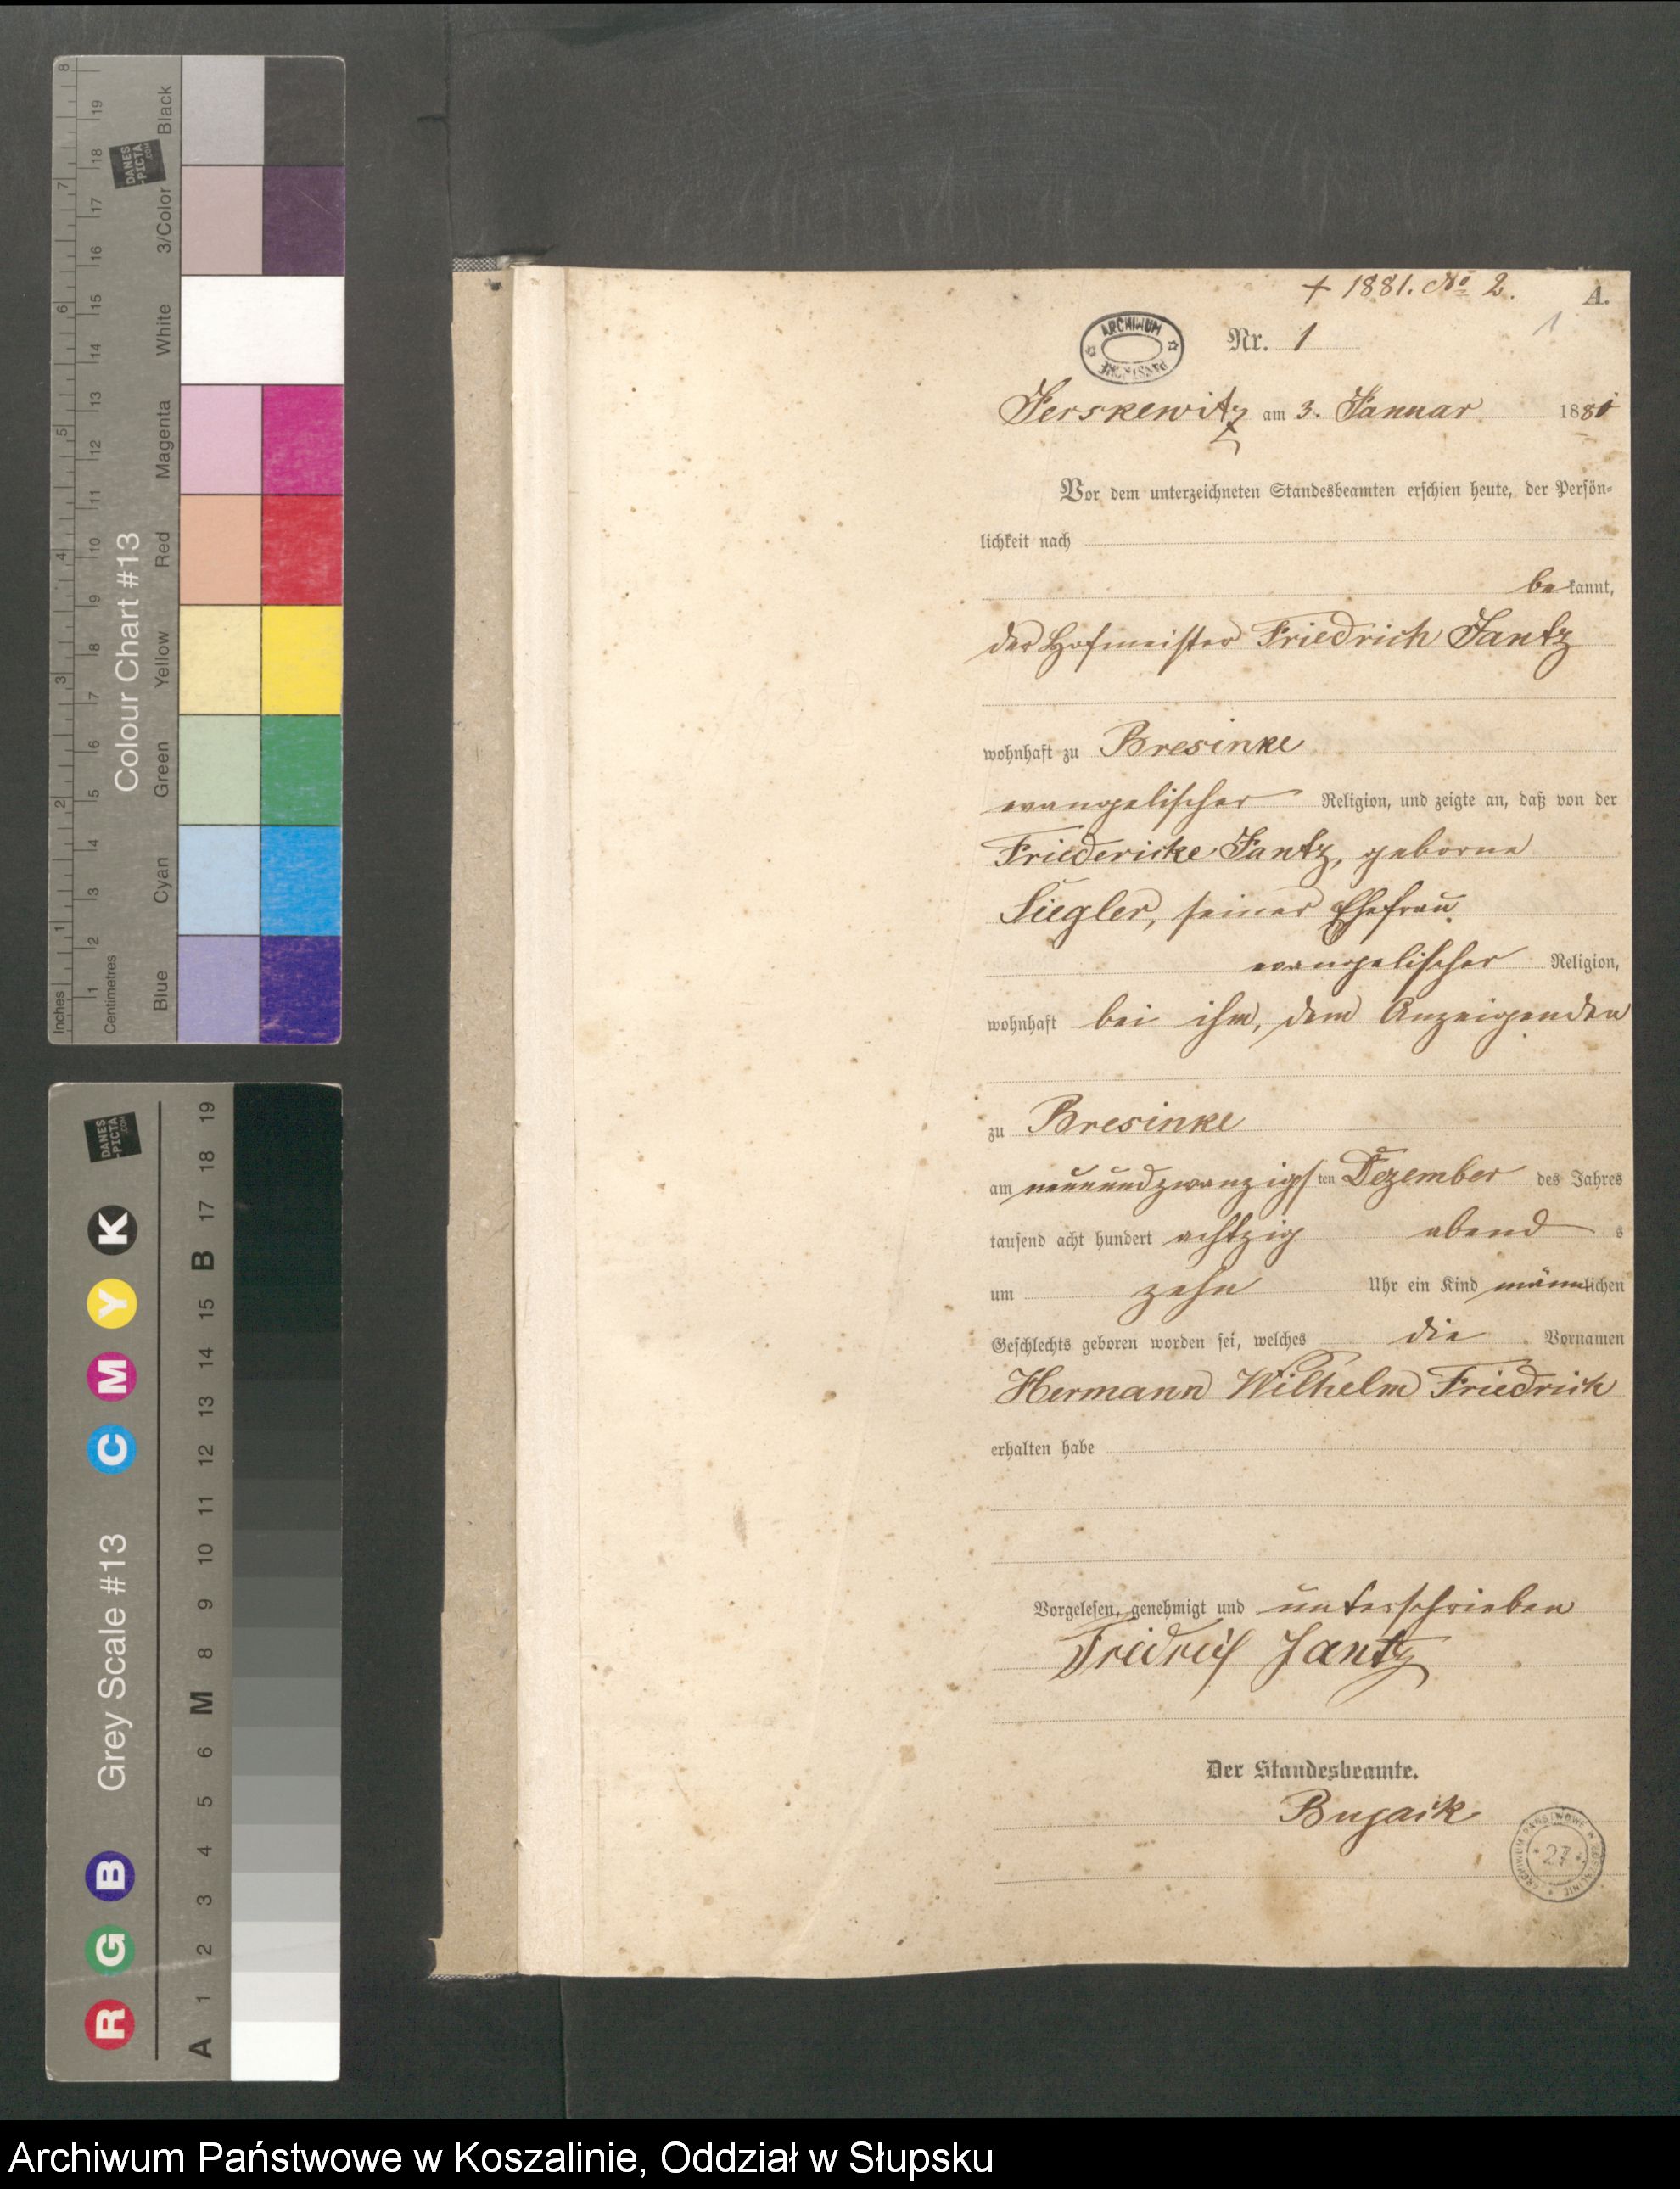 + 1881. No 2.
A.
1
ARCHIWUM
PAŃSTWOWE
Nr. 1
Jerskewitz am 3. Januar 1881
Vor dem unterzeichneten Standesbeamten erschien heute, der Persön-
lichkeit nach
bekannt,
der Hofmeister Friedrich Jantz
wohnhaft zu Bresinke
evangelischer Religion, und zeigte an, daß von der
Friedericke Jantz, geborne
Siegler, seiner Ehefrau
evangelischer Religion,
wohnhaft bei ihm, dem Anzeigenden
zu Bresinke
am neunundzwanzigsten Dezember des Jahres
tausend acht hundert achtzig abends
um zehn Uhr ein Kind männlichen
Geschlechts geboren worden sei, welches die Vornamen
Hermann Wilhelm Friedrich
erhalten habe
Vorgelesen, genehmigt und unterschrieben
Fridrich Jantz
Der Standesbeamte.
Bugaik
ARCHIWUM PAŃSTWOWE W KOSZALINIE
27
Inches 1 2 3 4 5 6 7 8
Centimetres 1 2 3 4 5 6 7 8 9 10 11 12 13 14 15 16 17 18 19
DANES
-PICTA
.COM
Colour Chart #13
Blue Cyan Green Yellow Red Magenta White 3/Color Black
DANES
-PICTA
.COM
R G B Grey Scale #13 C M Y K
A 1 2 3 4 5 6 M 8 9 10 11 12 13 14 15 B 17 18 19
Archiwum Państwowe w Koszalinie, Oddział w Słupsku